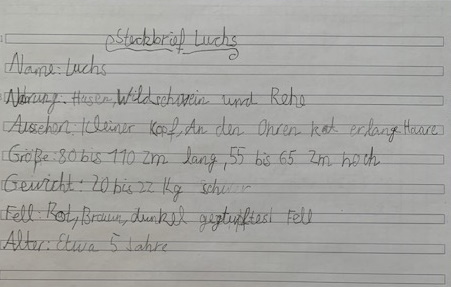 Steckbrief Luchs
Name: Luchs
Narung: Hasen, Wildschwein und Rehe
Aussehen, kleiner Kopf, An den Ohren hat er lange Haare
Größe: 80 bis 110 Zm lang, 55 bis 65 Zm hoch
Gewicht: 20 bis 22 Kg schwer
Fell: Rot, Braun, dunkel Fell
Alter: Etwa 5 Jahre